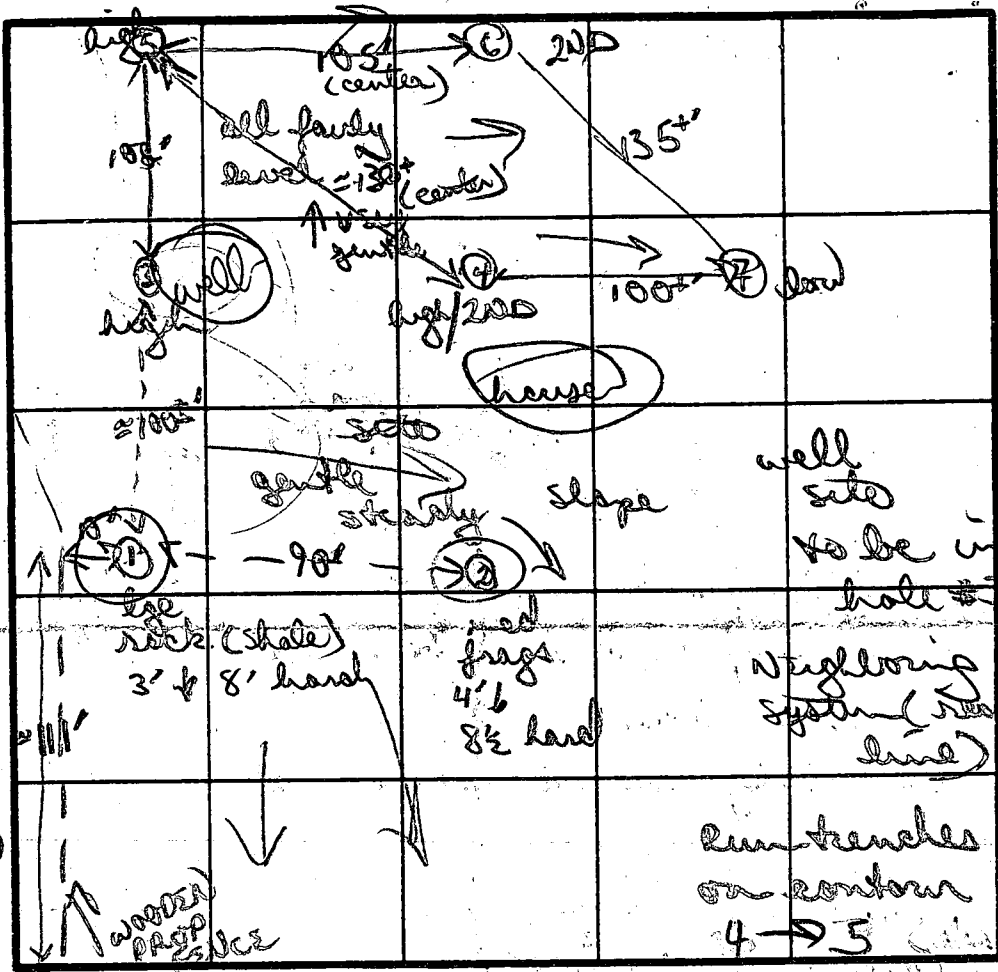 high
5
105'
(center)
6
2ND
all fairly
level
≈130+'
(center)
135+'
105'
very
gentle
3
well
high
4
high/2ND
100+'
7
low
house
≈100±'
gentle
steady
slope
well
site
to be in
hole #
1
90'
2
lge
rock (shale)
3' ↓ 8' hard
frags
4' ↓
8½ hard
Neighboring
system (
line)
≈111'
WOODEN
PROP
Run trenches
on contour
4 → 5